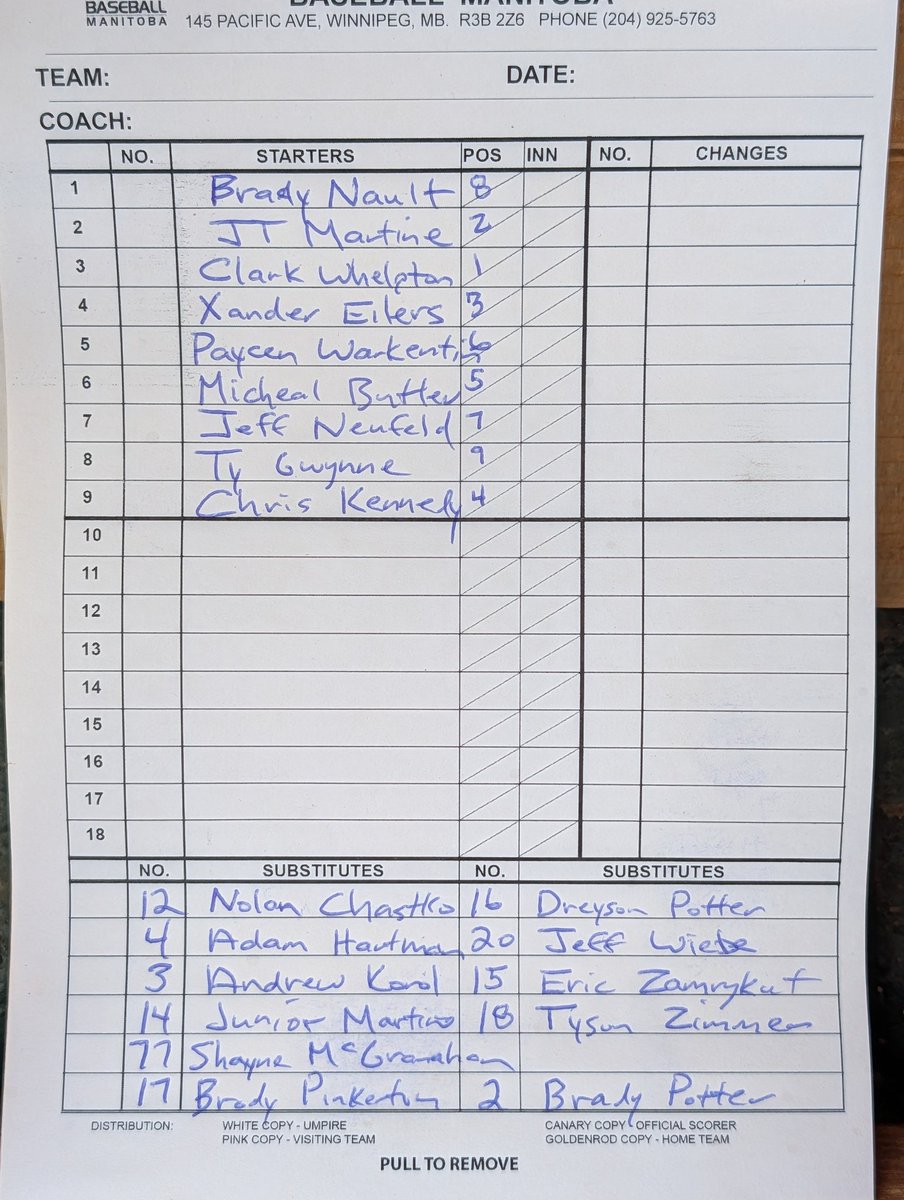 BASEBALL MANITOBA
BASEBALL
MANITOBA
145 PACIFIC AVE, WINNIPEG, MB. R3B 2Z6 PHONE (204) 925-5763
TEAM: DATE:
COACH:
NO. STARTERS POS INN NO. CHANGES
1 Brady Nault 8
2 JT Martine 2
3 Clark Whelpton 1
4 Xander Eilers 3
5 Paycen Warkentin 6
6 Micheal Butler 5
7 Jeff Neufeld 7
8 Ty Gwynne 9
9 Chris Kennedy 4
10
11
12
13
14
15
16
17
18
NO. SUBSTITUTES NO. SUBSTITUTES
12 Nolan Chastko 16 Dreyson Potter
4 Adam Hartman 20 Jeff Wiebe
3 Andrew Karol 15 Eric Zamrykut
14 Junior Martino 18 Tyson Zimmer
77 Shayne McGranahan
17 Brady Pinkerton 2 Brady Potter
DISTRIBUTION: WHITE COPY - UMPIRE CANARY COPY - OFFICIAL SCORER
PINK COPY - VISITING TEAM GOLDENROD COPY - HOME TEAM
PULL TO REMOVE